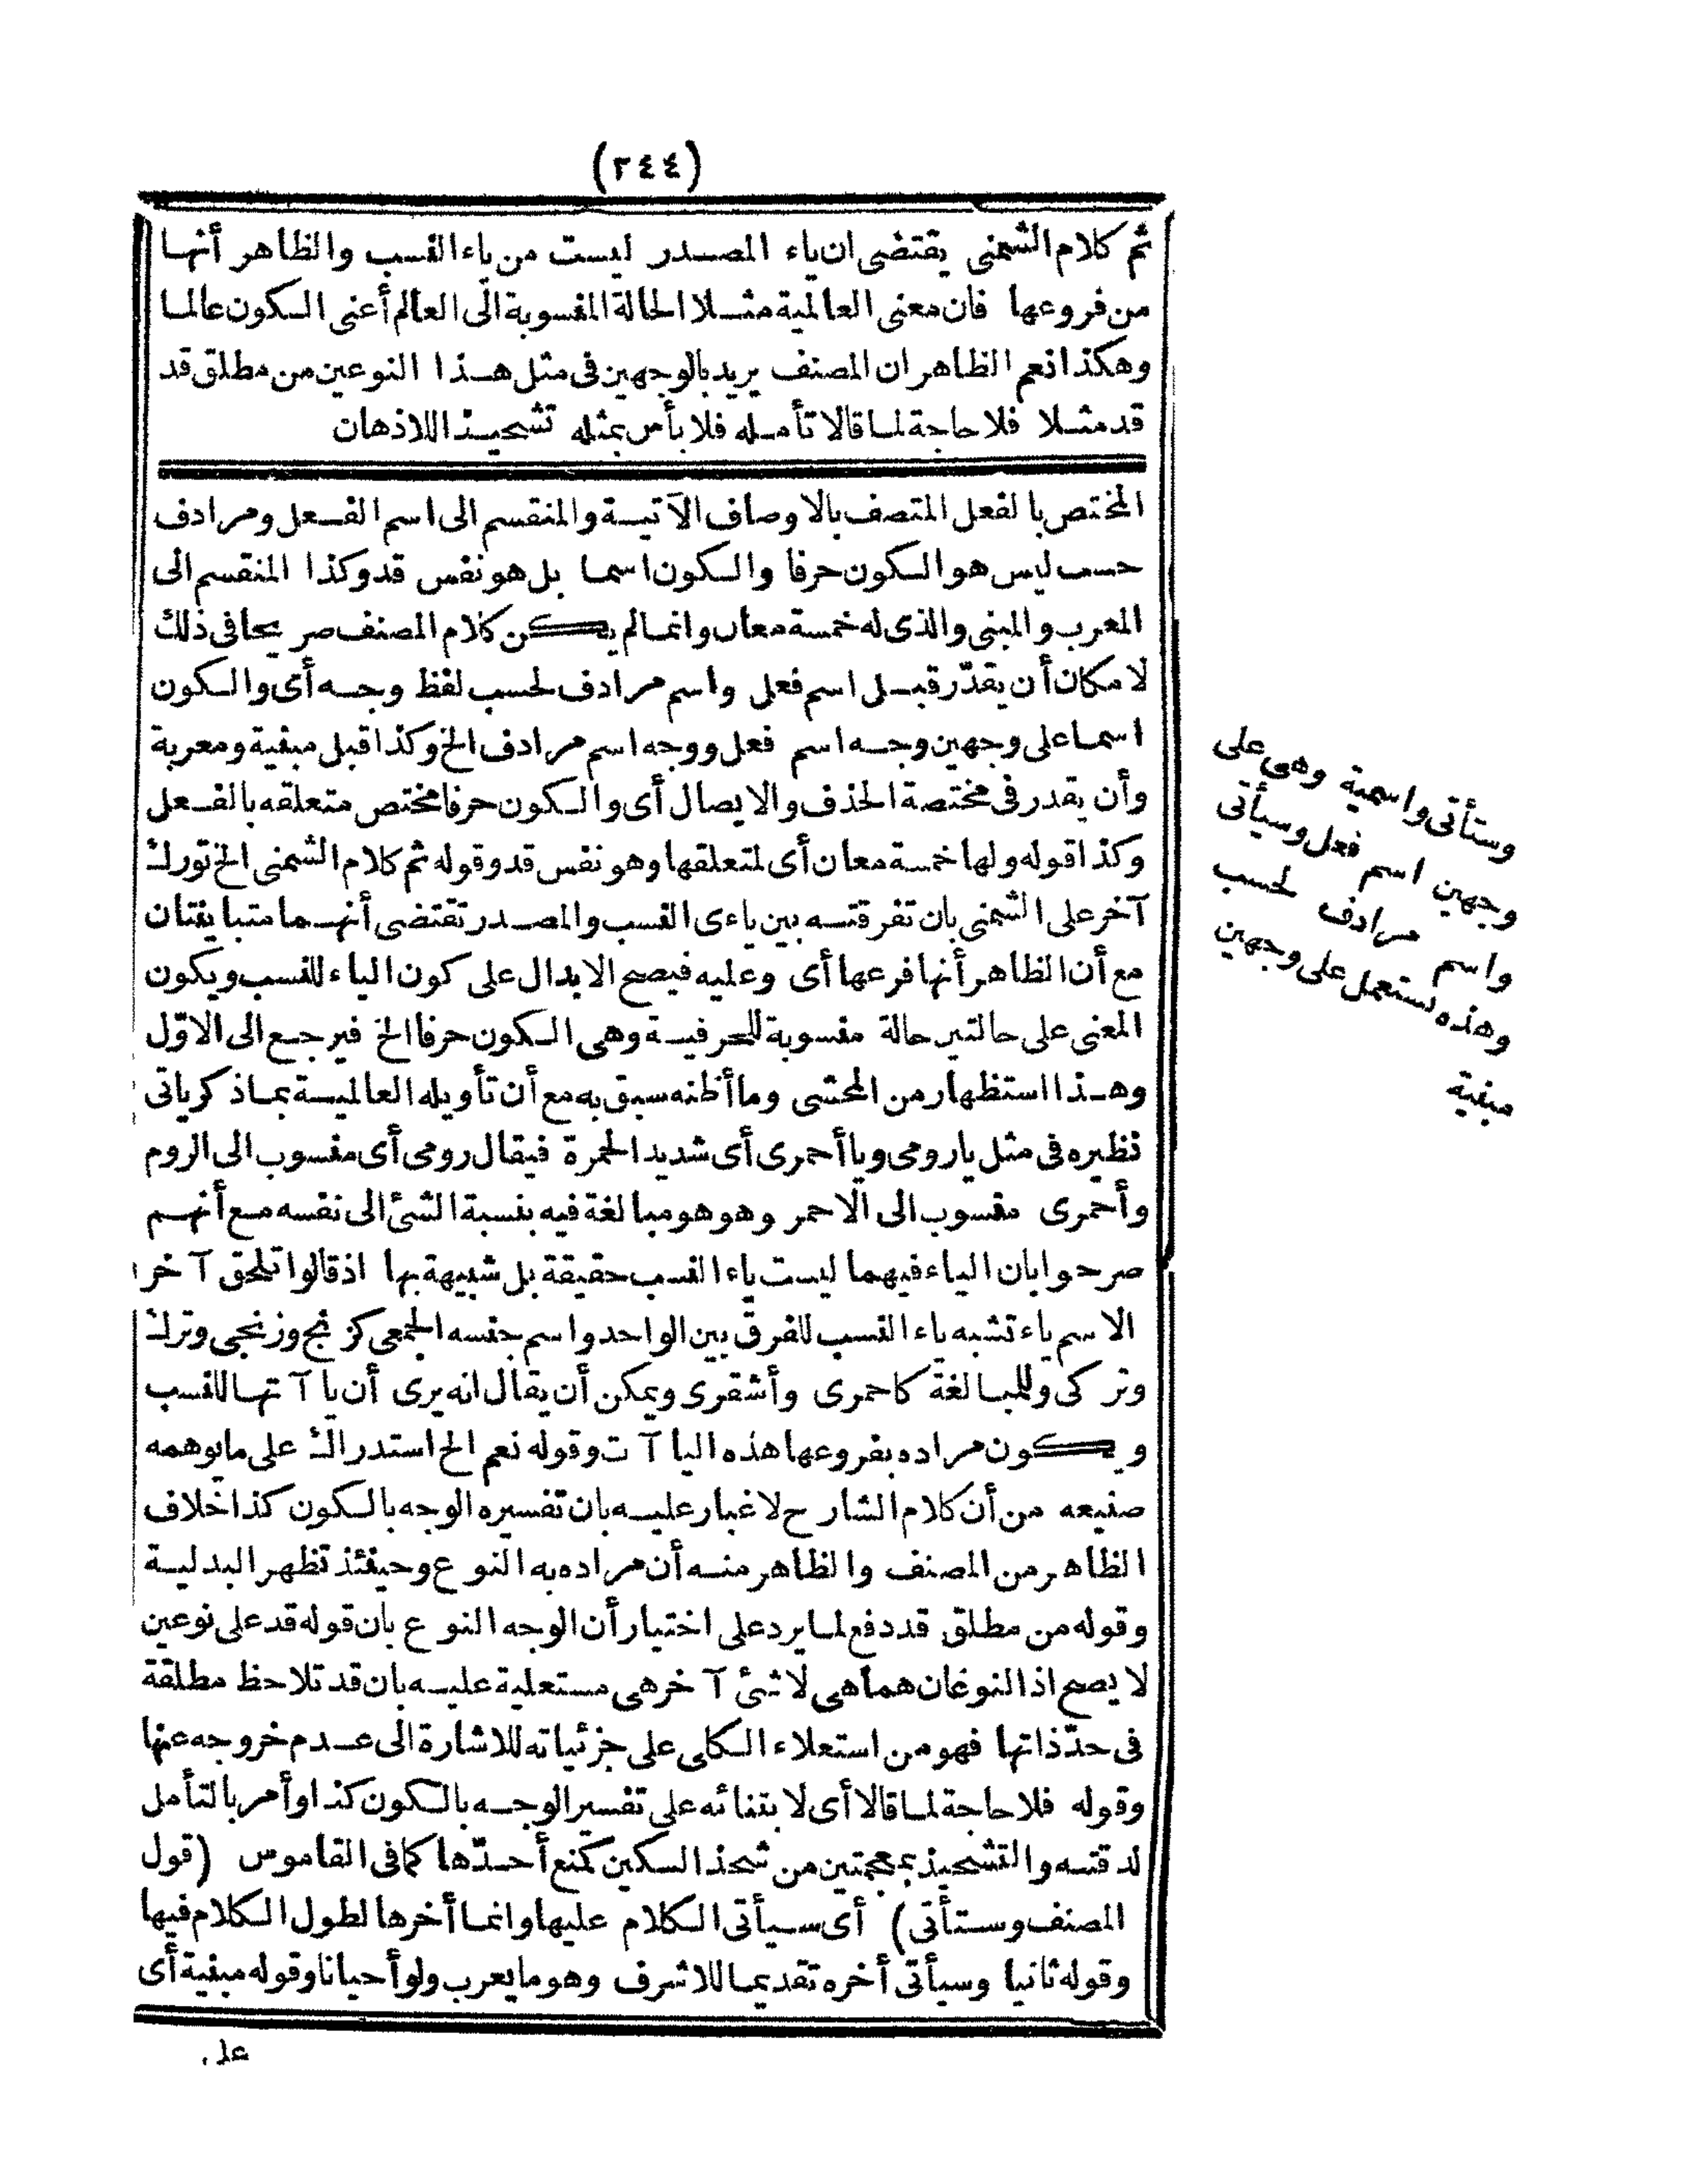 (٣٤٤)
ثم كلام الشمنى يقتضى ان ياء المصدر ليست من ياء النسب والظاهر أنها
من فروعها فان معنى العالمية مثلا الحالة المنسوبة الى العالم أعنى الكون عالما
وهكذا نعم الظاهر ان المصنف يريد بالوجهين فى مثل هذا النوعين من مطلق قد
قد مثلا فلا حاجة لما قالا تأمله فلا بأس بمثله تشحيذا للاذهان
المختص بالفعل المتصف بالاوصاف الآتية والمنقسم الى اسم الفعل ومرادف
حسب ليس هو الكون حرفا والكون اسما بل هو نفس قد وكذا المنقسم الى
المعرب والمبنى والذى له خمسة معان وانما لم يكن كلام المصنف صريحا فى ذلك
لامكان أن يقدّر قبل اسم فعل واسم مرادف لحسب لفظ وجه أى والكون
اسما على وجهين وجه اسم فعل ووجه اسم مرادف الخ وكذا قبل مبنية ومعربة
وأن يقدر فى مختصة الحذف والايصال أى والكون حرفا مختص متعلقه بالفعل
وكذا قوله ولها خمسة معان أى لمتعلقها وهو نفس قد وقوله ثم كلام الشمنى الخ تورك
آخر على الشمنى بان تفرقته بين ياءى النسب والمصدر تقتضى أنهما متباينتان
مع أن الظاهر أنها فرعها أى وعليه فيصح الابدال على كون الياء للنسب ويكون
المعنى على حالتين حالة منسوبة للحرفية وهى الكون حرفا الخ فيرجع الى الاوّل
وهذا استظهار من المحشى وما أظنه سبق به مع أن تأويله العالمية بما ذكر ياتى
نظيره فى مثل يا رومى ويا أحمرى أى شديد الحمرة فيقال رومى أى منسوب الى الروم
وأحمرى منسوب الى الاحمر وهو هو مبالغة فيه بنسبة الشئ الى نفسه مع أنهم
صرحوا بان الياء فيهما ليست ياء النسب حقيقة بل شبيهة بها اذ قالوا تلحق آخر
الاسم ياء تشبه ياء النسب للفرق بين الواحد واسم جنسه الجمعى كزنج وزنجى وترك
وتركى وللمبالغة كاحمرى وأشقرى ويمكن أن يقال انه يرى أن ياآتها للنسب
ويكون مراده بفروعها هذه الياآت وقوله نعم الخ استدراك على ما يوهمه
صنيعه من أن كلام الشارح لا غبار عليه بان تفسيره الوجه بالكون كذا خلاف
الظاهر من المصنف والظاهر منه أن مراده به النوع وحينئذ تظهر البدلية
وقوله من مطلق قد دفع لما يرد على اختيار أن الوجه النوع بان قوله قد على نوعين
لا يصح اذ النوعان هما هى لا شئ آخر هى مستعلية عليه بان قد تلاحظ مطلقة
فى حدّ ذاتها فهو من استعلاء الكلى على جزئياته للاشارة الى عدم خروجه عنها
وقوله فلا حاجة لما قالا أى لابتنائه على تفسير الوجه بالكون كذا وأمر بالتأمل
لدقته والتشحيذ بمعجمتين من شحذ السكين كمنع أحدّها كما فى القاموس (قول
المصنف وستأتى) أى سيأتى الكلام عليها وانما أخرها لطول الكلام فيها
وقوله ثانيا وسيأتى أخره تقديما للاشرف وهو ما يعرب ولو أحيانا وقوله مبنية أى
وستأتى واسمية وهى على
وجهين اسم فعل وسيأتى
واسم مرادف لحسب
وهذه تستعمل على وجهين
مبنية